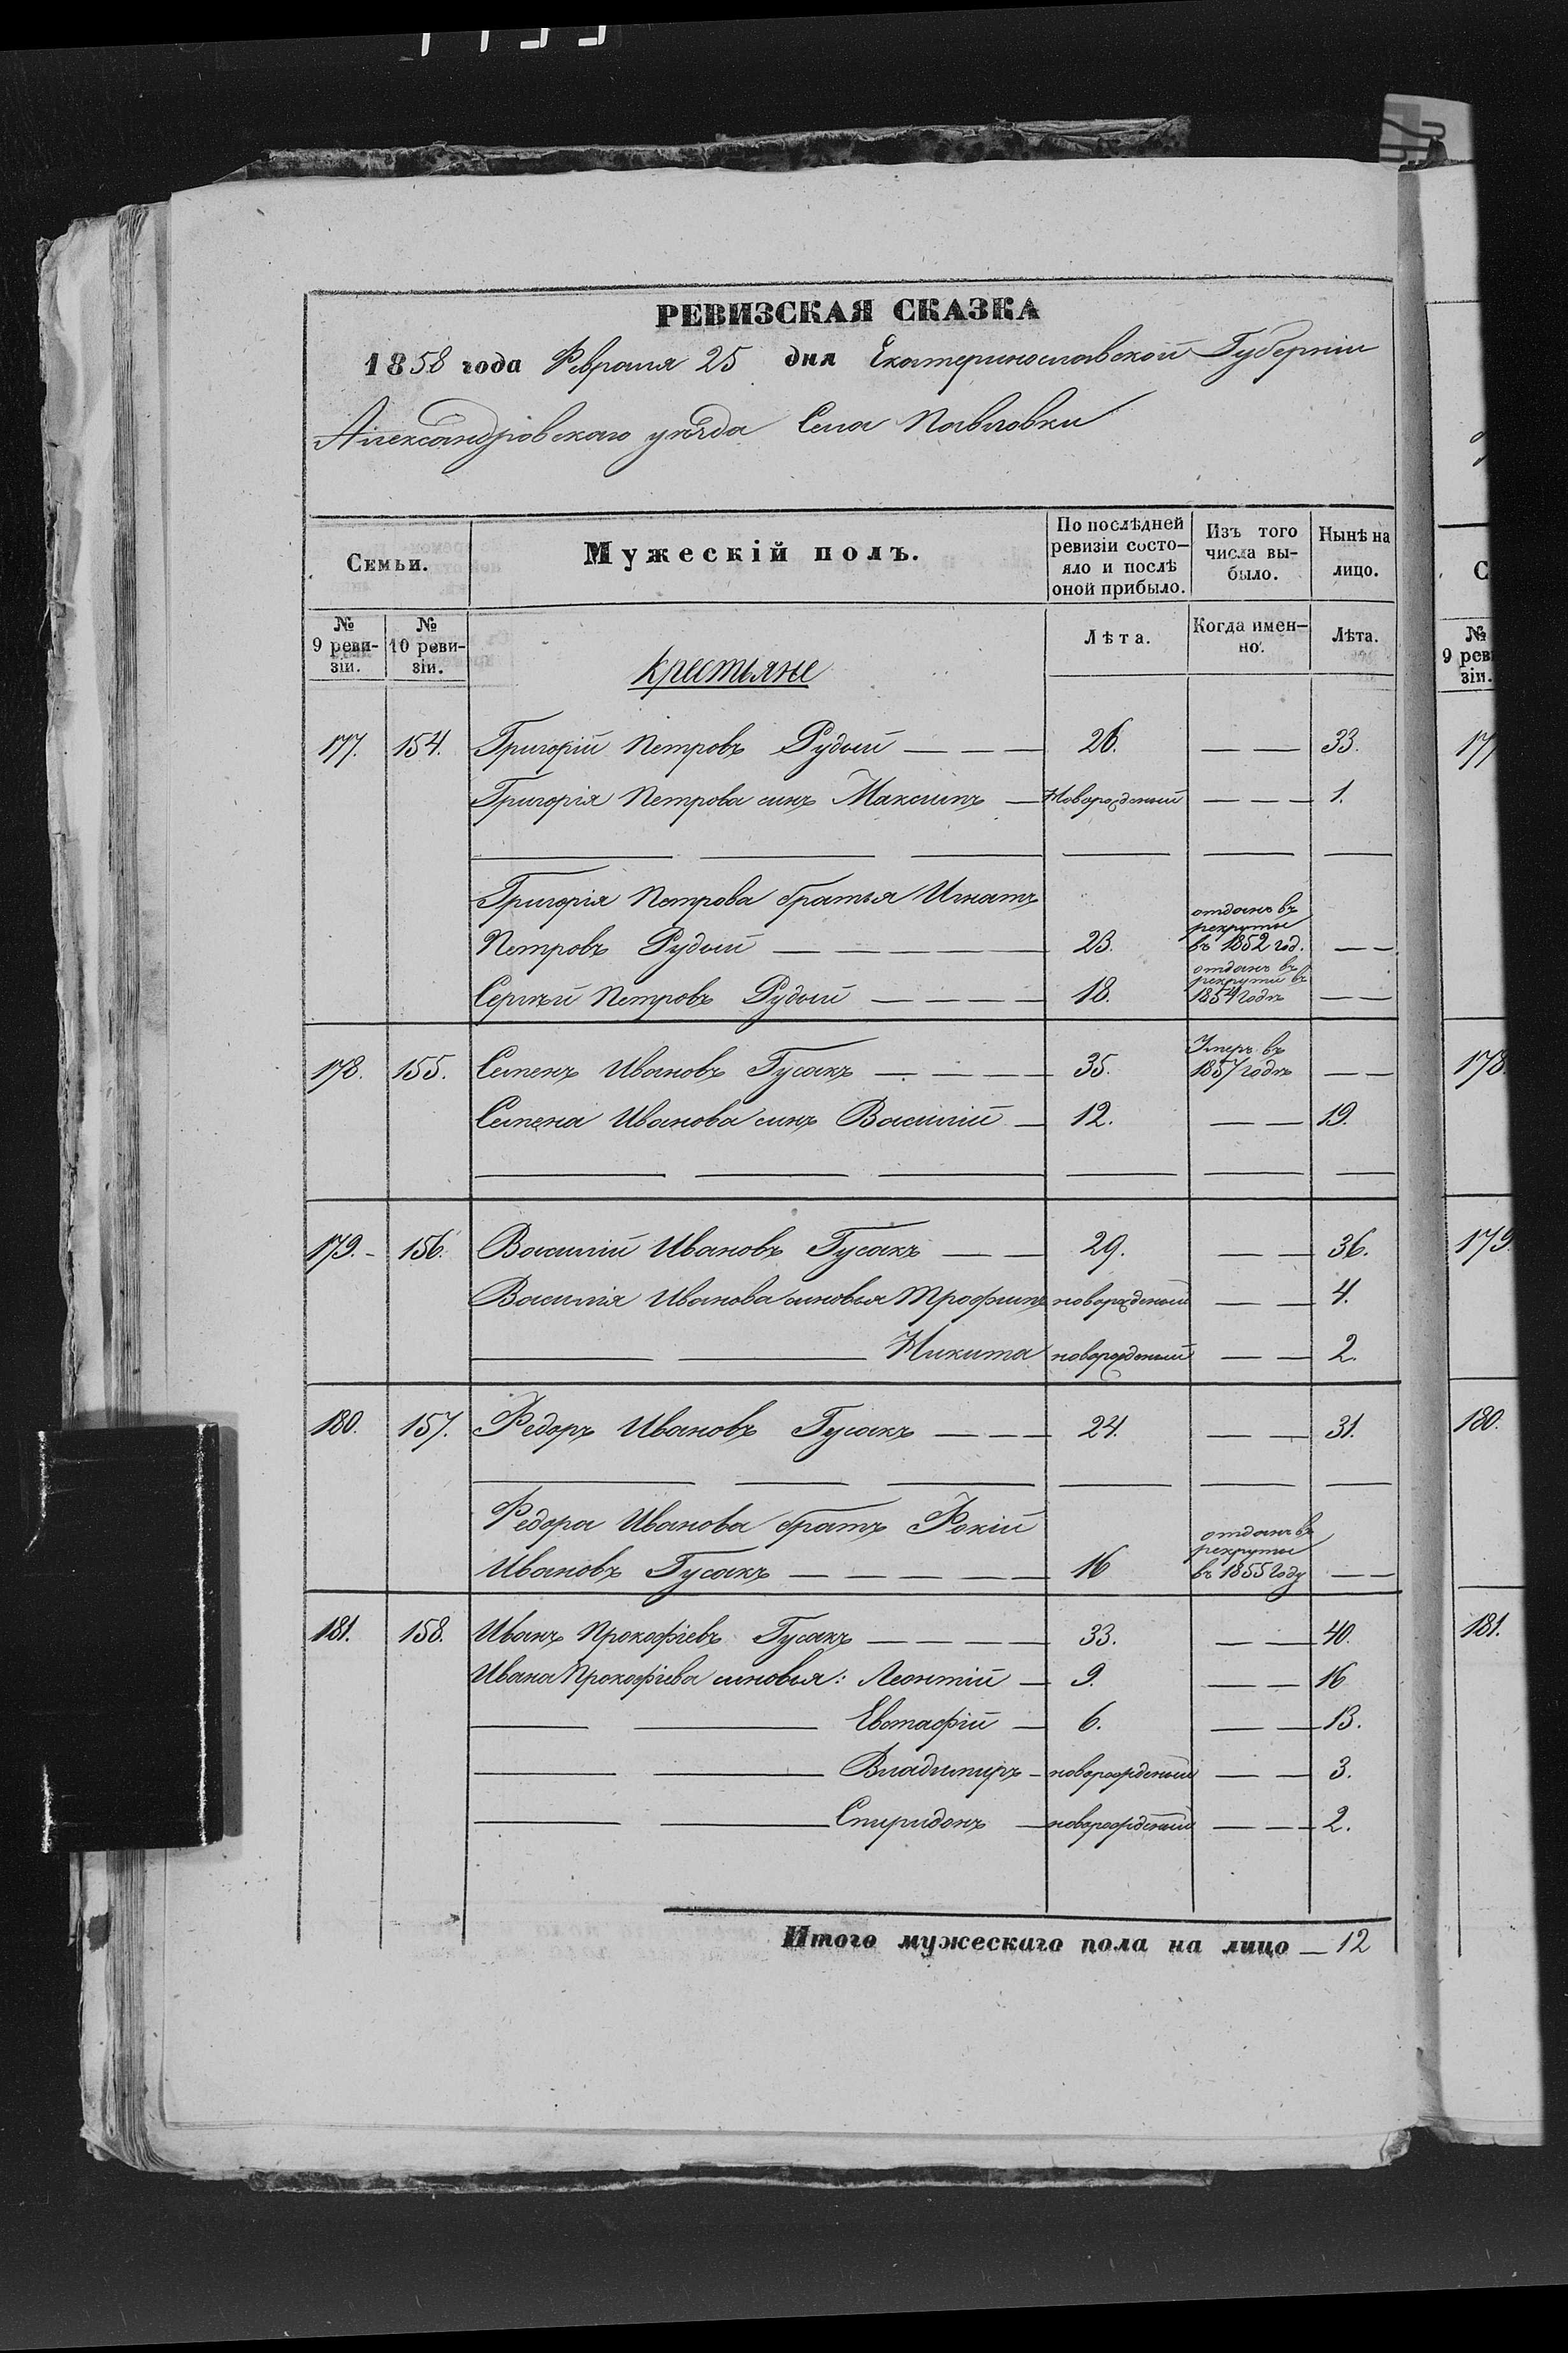 РЕВИЗСКАЯ СКАЗКА
1858 года Февраля 25 дня Екатеринославской Губерніи
Александровскаго уѣзда Села Павловки
Семьи. Мужескій полъ. По послѣдней ревизіи состо-яло и послѣ оной прибыло. Изъ того числа вы-было. Нынѣ на лицо.
№ 9 реви-зіи. № 10 реви-зіи. Лѣта. Когда имен-но. Лѣта.
крестьяне
177. 154. Григорій Петровъ Рудый — — — 26. — — 33.
Григорія Петрова сынъ Максимъ — Новорожденый — — — 1.
Григорія Петрова братья Игнатъ
Петровъ Рудый — — — — — 23. отданъ въ рекруты въ 1852 год. — —
Сергѣй Петровъ Рудый — — — — 18. отданъ въ рекруты въ 1854 годѣ — —
178. 155. Семенъ Ивановъ Гусакъ — — — — 35. Умеръ въ 1857 годѣ — —
Семена Иванова сынъ Василій — 12. — — 19.
179. - 156. Василій Ивановъ Гусакъ — — 29. — — 36.
Василія Иванова сыновья Трофимъ новорожденый — — 4.
— — Никита новорожденый — — 2.
180. 157. Федоръ Ивановъ Гусакъ — — — 24. — — 31.
Федора Иванова братъ Фокій
Ивановъ Гусакъ — — — — — 16 отданъ въ рекруты въ 1855 году — —
181. 158. Иванъ Прокофіевъ Гусакъ — — — — 33. — — 40.
Ивана Прокофіева сыновья: Леонтій — 9. — — 16
— — Евстафій — 6. — — 13.
— — Владимиръ - новорожденый — — 3.
— — Спиридонъ — новорожденый — — — 2.
Итого мужескаго пола на лицо — 12
С
№
9 рев
зіи.
177
178.
179.
180.
181.